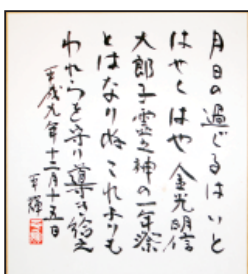 月日の過ぎるはいと
はやくはや金光明信
大郎子霊之神の一年祭
とはなりぬこれよりも
われらを守り導き給え
平成九年十二月十五日
平輝